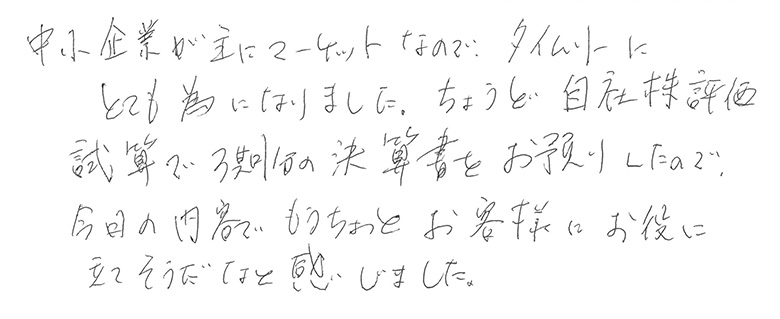 中小企業が主にマーケットなので、タイムリーに
とても為になりました。ちょうど自社株評価
試算で3期分の決算書をお預りしたので、
今日の内容でもうちょっとお客様にお役に
立てそうだなと感じました。